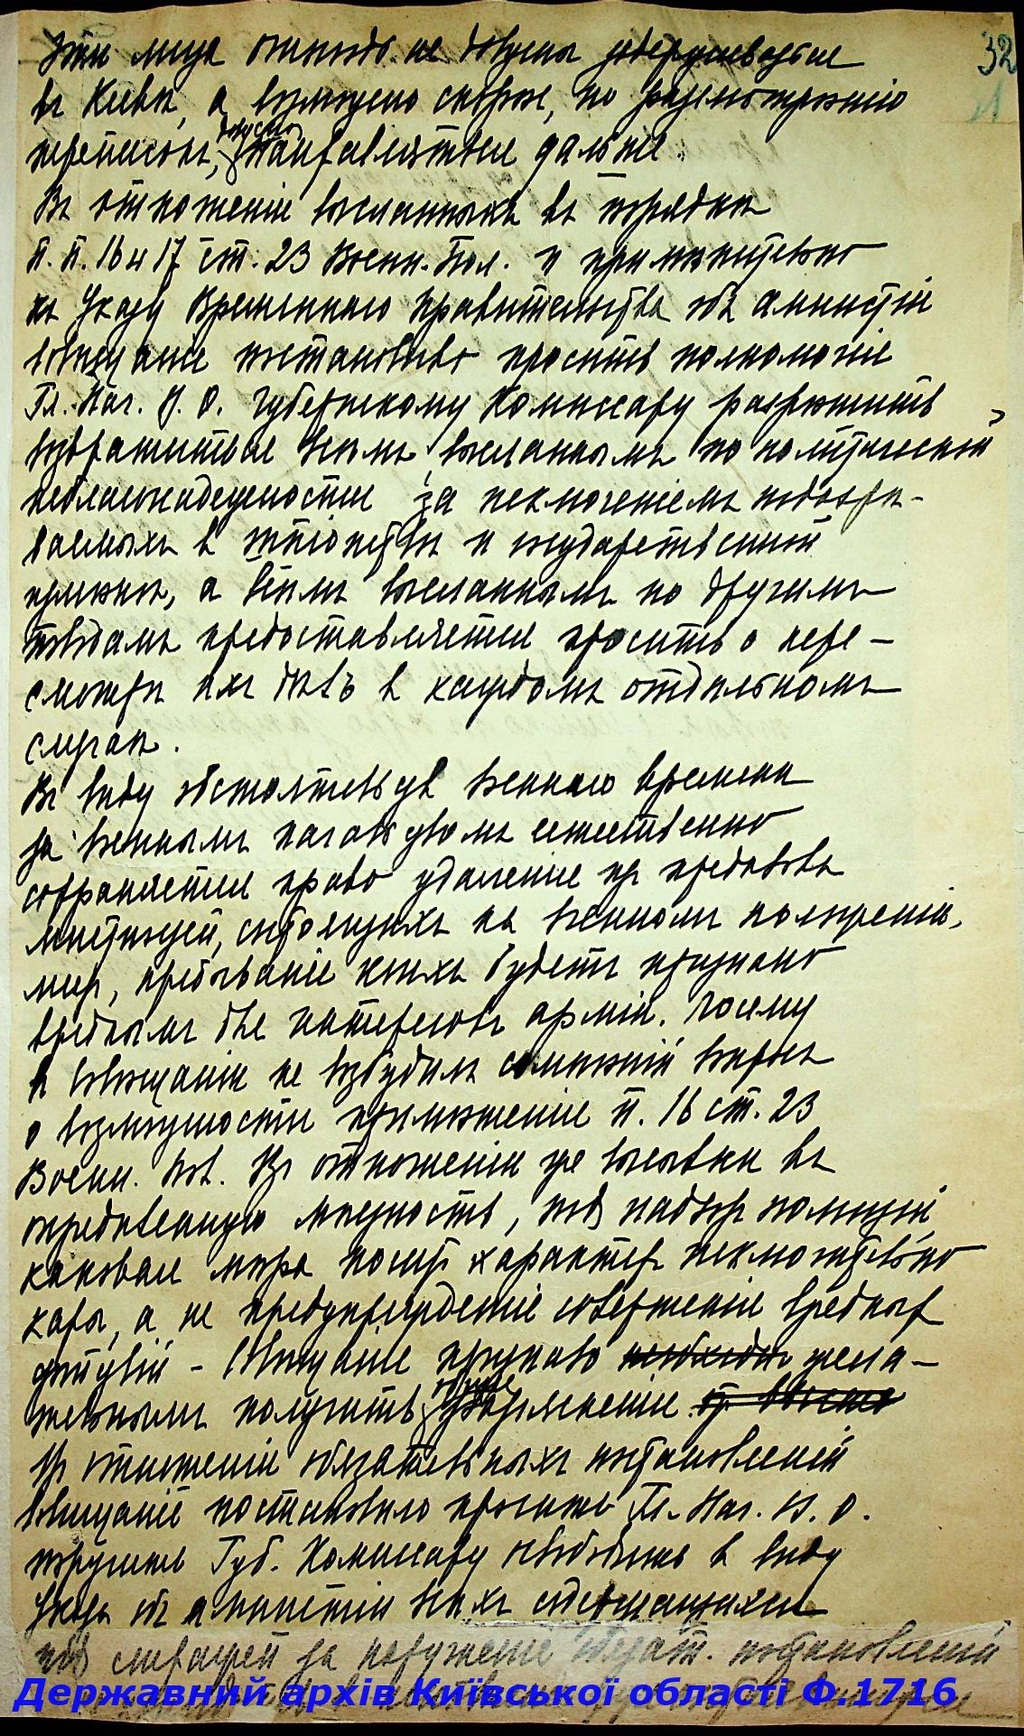 32
Эти лица отнюдь не должны удерживаться
въ Кіевѣ, а возможно скорѣе, по разсмотрѣнію
переписокъ, должны направляться дальше.
Въ отношеніи высланныхъ въ порядкѣ
п. п. 16 и 17 ст. 23 Военн. Пол. и примѣнительно
къ Указу Временнаго Правительства объ амнистіи
совѣщаніе постановило просить полномочіе
Гл. Нач. К. В. О. Губернскому Комиссару разрѣшить
возвратиться всѣмъ высланнымъ по политической
неблагонадежности за исключеніемъ подозрѣ-
ваемыхъ въ шпіонствѣ и государственной
измѣнѣ, а всѣмъ высланнымъ по другимъ
поводамъ предоставляется просить о пере-
смотрѣ ихъ дѣлъ въ каждомъ отдѣльномъ
случаѣ.
Въ виду обстоятельствъ военнаго времени
за военнымъ начальствомъ естественно
сохраняется право удаленія изъ предѣловъ
мѣстностей, состоящихъ на военномъ положеніи,
лицъ, пребываніе коихъ будетъ признано
вреднымъ для интересовъ арміи. Посему
въ совѣщаніи не возбудилъ сомнѣній вопросъ
о возможности примѣненія п. 16 ст. 23
Военн. Пол. Въ отношеніи же высылки въ
опредѣленную мѣстность, подъ надзоръ полиціи
каковая мѣра носитъ характеръ исключительно
кары, а не предупрежденія совершенія вредныхъ
дѣйствій - Совѣщаніе признало жела-
тельнымъ получить разъясненіе
Въ отношеніи обязательныхъ постановленій
совѣщаніе постановило просить Гл. Нач. К. В. О.
поручить Губ. Комиссару освободить въ виду
Указа объ амнистіи всѣхъ содержащихся
подъ стражей за нарушеніе обязат. постановленій
Державний архів Київської області Ф.1716